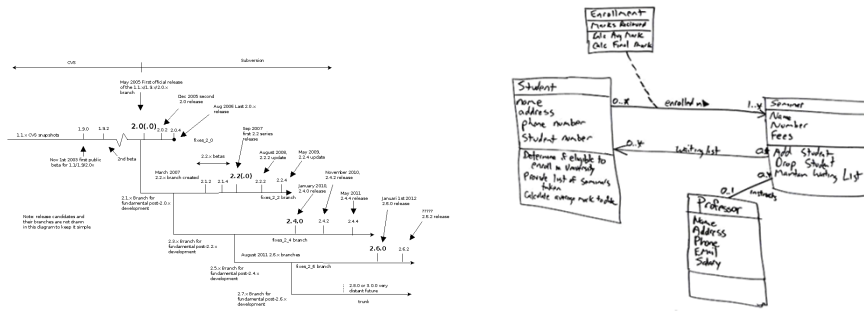 CVS
Subversion
May 2005 First official release
of the 1.1.x/1.9.x/2.0.x
branch
Dec 2005 second
2.0 release
Aug 2006 Last 2.0.x
release
1.9.0
1.9.2
2.0(.0)
2.0.2
2.0.4
1.1.x CVS snapshots
fixes_2_0
Nov 1st 2003 first public
beta for 1.1/1.9/2.0x
2nd beta
Sep 2007
first 2.2 series
release
2.2.x betas
August 2008,
2.2.2 update
May 2009,
2.2.4 update
March 2007
2.2.x branch created
2.1.2
2.1.4
2.2(.0)
2.2.2
2.2.4
fixes_2_2 branch
2.1.x Branch for
fundamental post-2.0.x
development
January 2010,
2.4.0 release
November 2010,
2.4.2 release
May 2011
2.4.4 release
Note: release candidates and
their branches are not shown
in this diagram to keep it simple
2.4.0
2.4.2
2.4.4
fixes_2_4 branch
2.3.x Branch for
fundamental post-2.2.x
development
Januari 1st 2012
2.6.0 release
????
2.6.2 release
August 2011 2.6.x branches
2.6.0
2.6.2
fixes_2_6 branch
2.5.x Branch for
fundamental post-2.4.x
development
2.8.0 or 3.0.0 very
distant future
trunk
2.7.x Branch for
fundamental post-2.6.x
development
Enrollment
Marks Received
Calc Avg Mark
Calc Final Mark
Student
name
address
phone number
student number
Determine if eligible to
enroll in University
Provide list of seminars
taken
Calculate average mark to date
0..*
enrolled in
1..*
0..*
waiting list
Seminar
Name
Number
Fees
Add Student
Drop Student
Maintain Waiting List
0..1
instructs
Professor
Name
Address
Phone
Email
Salary